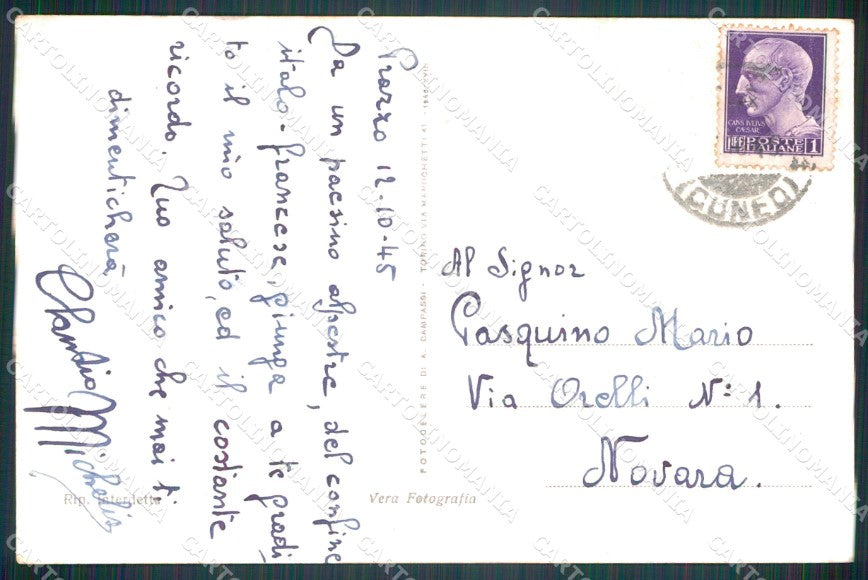 Prazzo 12-10-45
Da un paesino alpestre, del confine
italo-francese, giunga a te gradi
to il mio saluto, ed il costante
ricordo. Tuo amico che mai ti
dimenticherà
Claudio Michelis
Rip. Interdetta
FOTOCELERE DI A. CAMPASSI - TORINO VIA MARIGHETTI 41 - 1940-XVIII
Vera Fotografia
CAIVS IVLIVS
CAESAR
LIRE POSTE ITALIANE 1
(CUNEO)
Al Signor
Pasquino Mario
Via Orelli N° 1.
Novara.
CARTOLINOMANIA